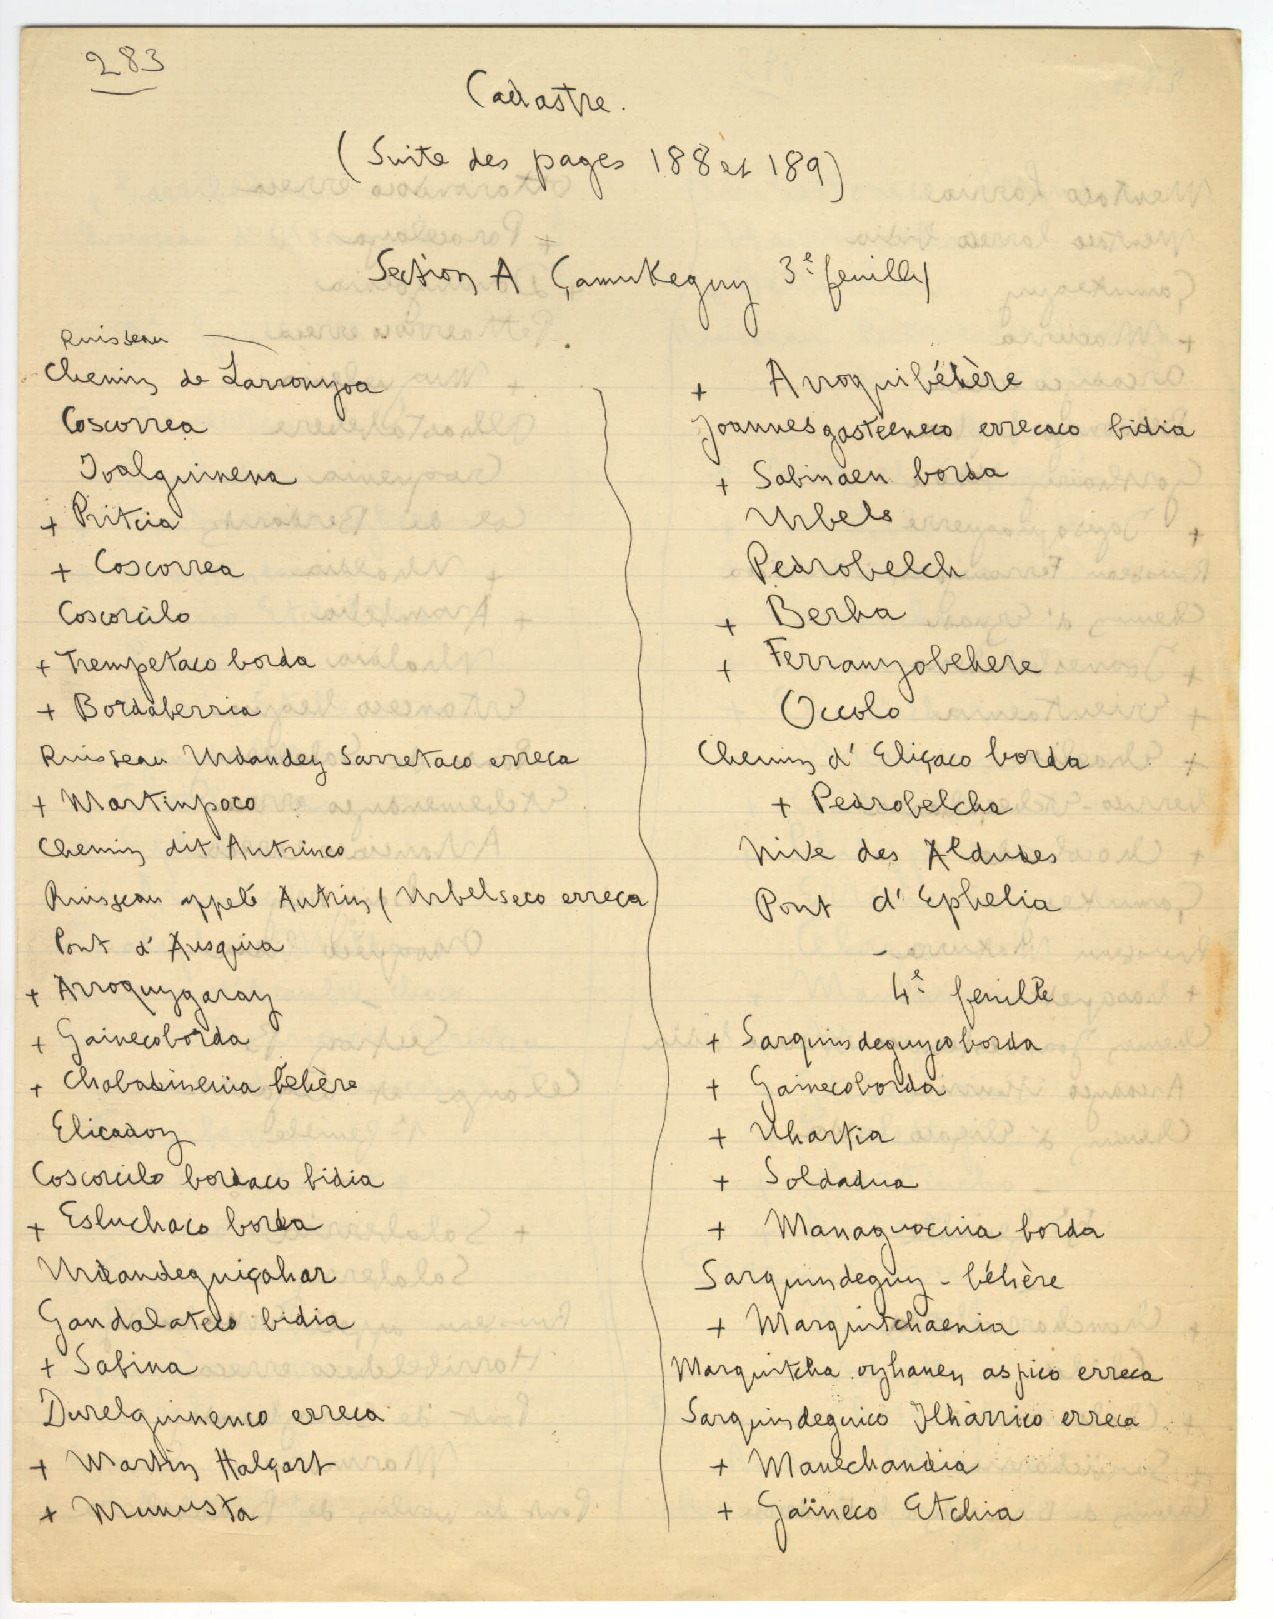 283
Cadastre.
(Suite des pages 188 et 189)
Section A Çamukeguy 3e feuille
Ruisseau
Chemin de Larronyoa
Coscorrea
Ioalguinena
+ Pritcia
+ Coscorrea
Coscorcilo
+ Trempetaco borda
+ Bordaberria
Ruisseau Urdandey Sarretaco erreca
+ Martinpoco
Chemin dit Autrinco
Ruisseau appelé Autrin ( Urbelseco erreca
Pont d'Ausquia
+ Arroquygaray
+ Gainecoborda
+ Chabadinenia béhère
Elicadoy
Coscorcilo bordaco bidia
+ Esluchaco borda
Urdandeguiçahar
Gandalateco bidia
+ Sabina
Durelguinenco erreca
+ Martin Halçart
+ Munusta
+ Arroquibéhère
Joannesgasteeneco errecaco bidia
+ Sabinaen borda
Urbels
+
Pedrobelch
+ Berha
+ Ferranyobehere
Occolo
Chemin d'Eliçaco borda
+ Pedrobelcha
Nive des Aldudes
Pont d'Ephelia
4e feuille
+ Sarquindeguycoborda
+ Gainecoborda
+ Uhartia
+ Soldadua
+ Managuocinia borda
Sarquindeguy - béhère
+ Marquitchaenia
Marquitcha oyhanen aspico erreca
Sarquindeguico Ilharrico erreca
+ Manechandia
+ Gaïneco Etchia